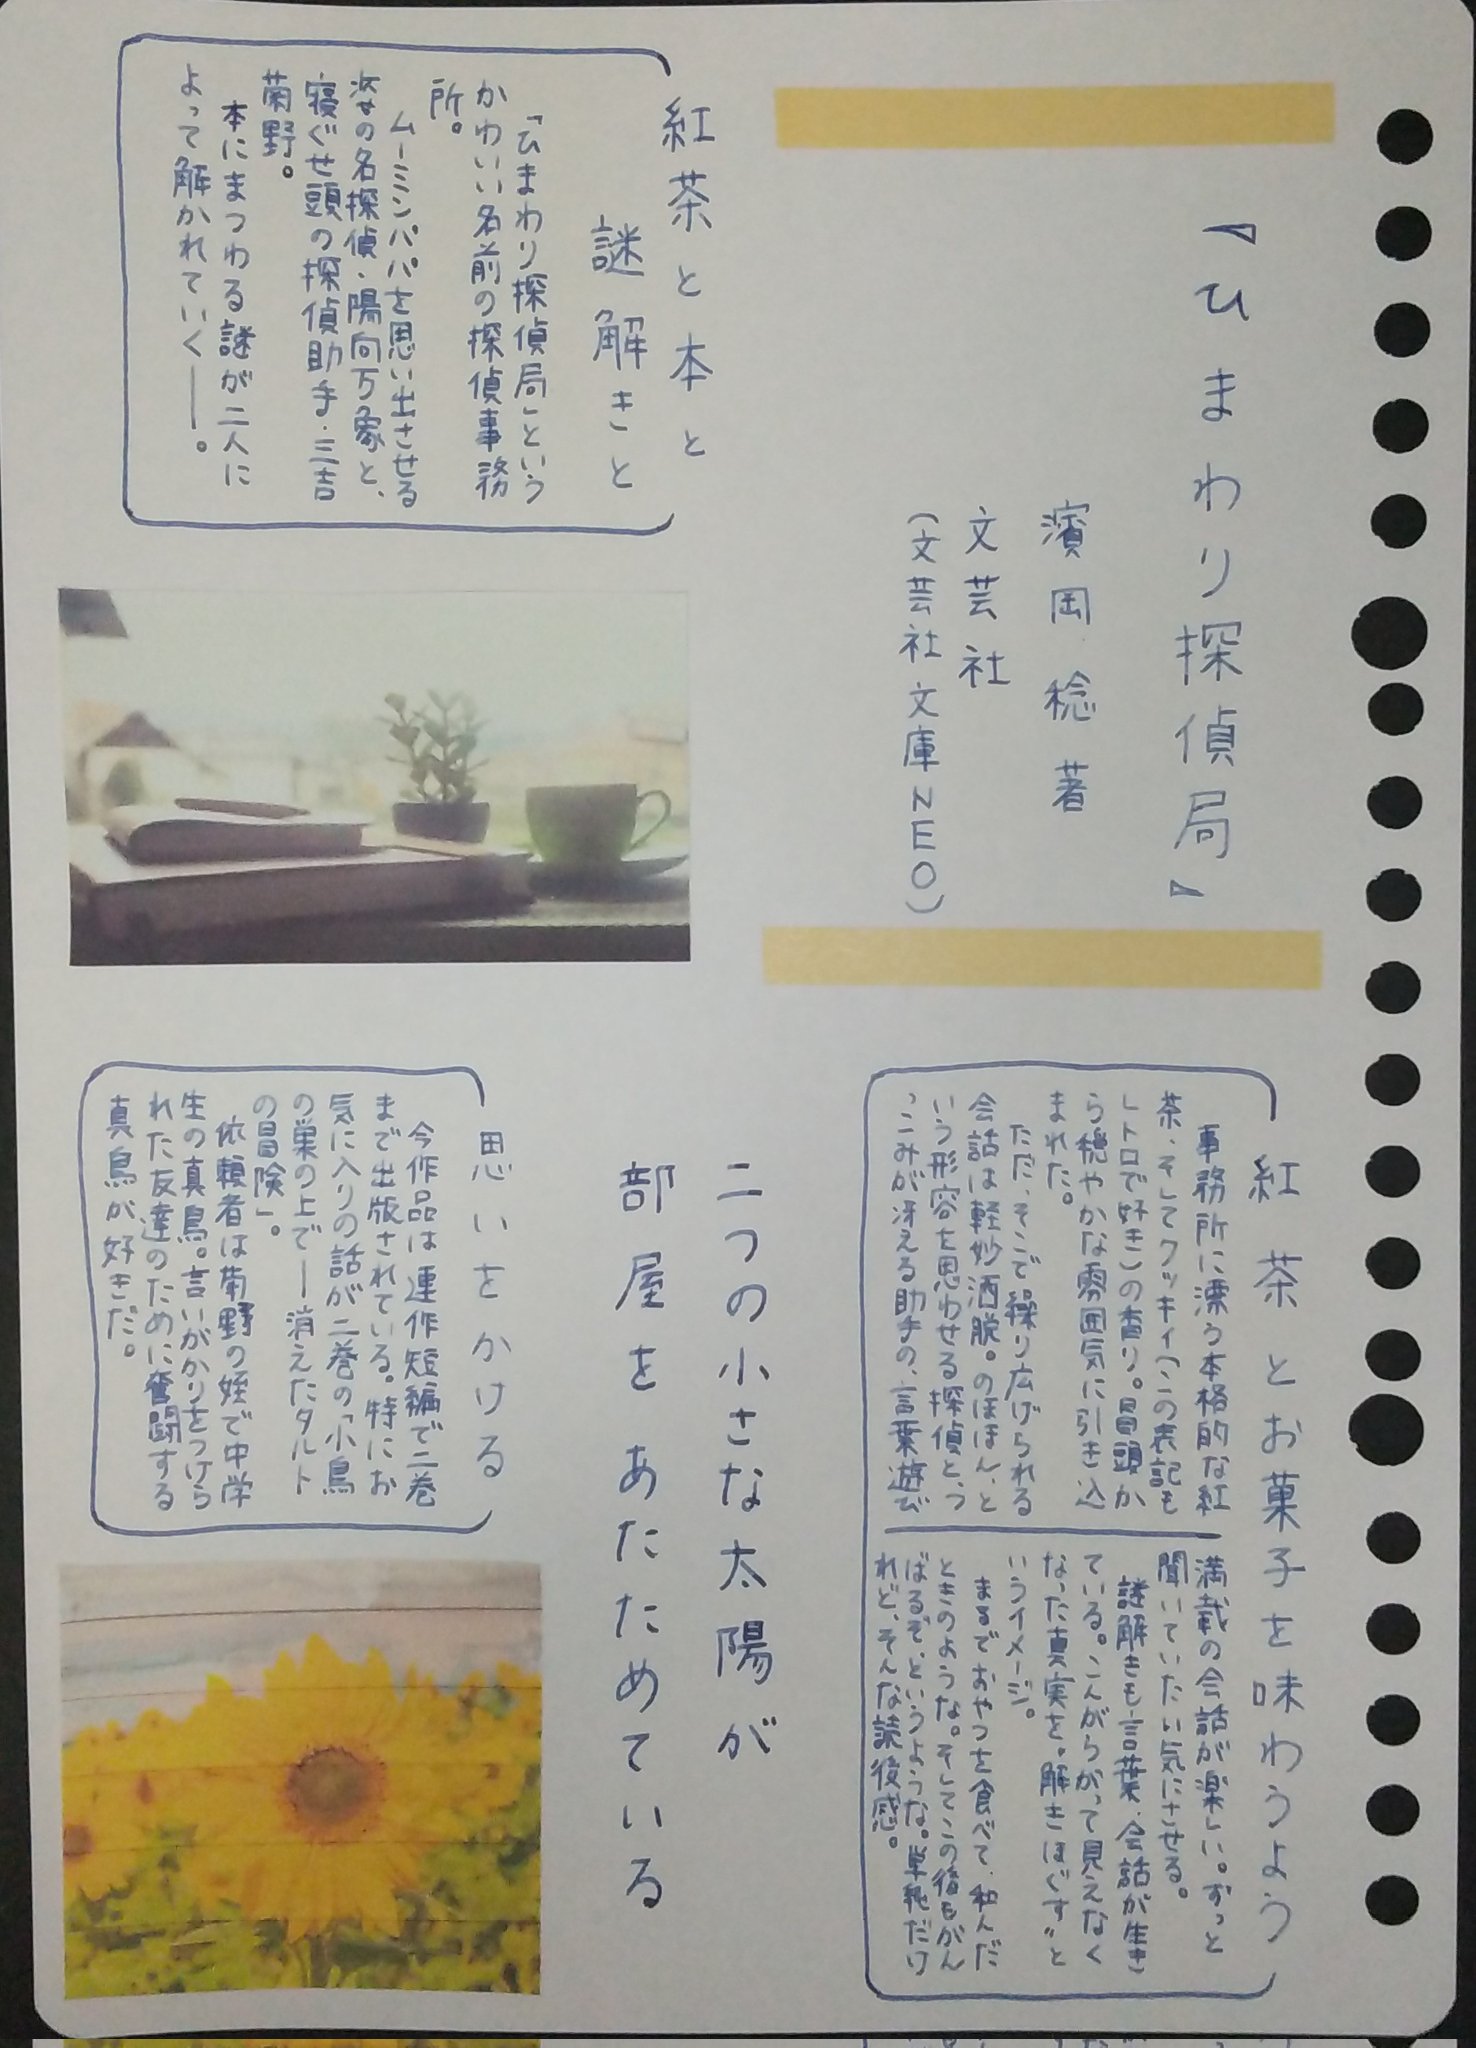 『ひまわり探偵局』
濱岡稔 著
文芸社
(文芸社文庫NEO)
紅茶と本と
謎解きと
「ひまわり探偵局」という
かわいい名前の探偵事務
所。
ムーミンパパを思い出させる
姿の名探偵・陽向万象と、
寝ぐせ頭の探偵助手・三吉
菊野。
本にまつわる謎が二人に
よって解かれていく――。
紅茶とお菓子を味わうよう
事務所に漂う本格的な紅
茶、そしてクッキィ(この表記も
レトロで好き)の香り。冒頭か
ら穏やかな雰囲気に引き込
まれた。
ただ、そこで繰り広げられる
会話は軽妙洒脱。のほほん、と
いう形容を思わせる探偵と、つ
っこみが冴える助手の、言葉遊び
満載の会話が楽しい。ずっと
聞いていたい気にさせる。
謎解きも言葉・会話が生き
ている。こんがらがって見えなく
なった真実を〝解きほぐす〟と
いうイメージ。
まるでおやつを食べて、和んだ
ときのような。そしてこの後もがん
ばるぞ、というような。単純だけ
れど、そんな読後感。
二つの小さな太陽が
部屋をあたためている
思いをかける
今作品は連作短編で二巻
まで出版されている。特にお
気に入りの話が二巻の「小鳥
の巣の上で―消えたタルト
の冒険」。
依頼者は菊野の姪で中学
生の真鳥。言いがかりをつけら
れた友達のために奮闘する
真鳥が好きだ。